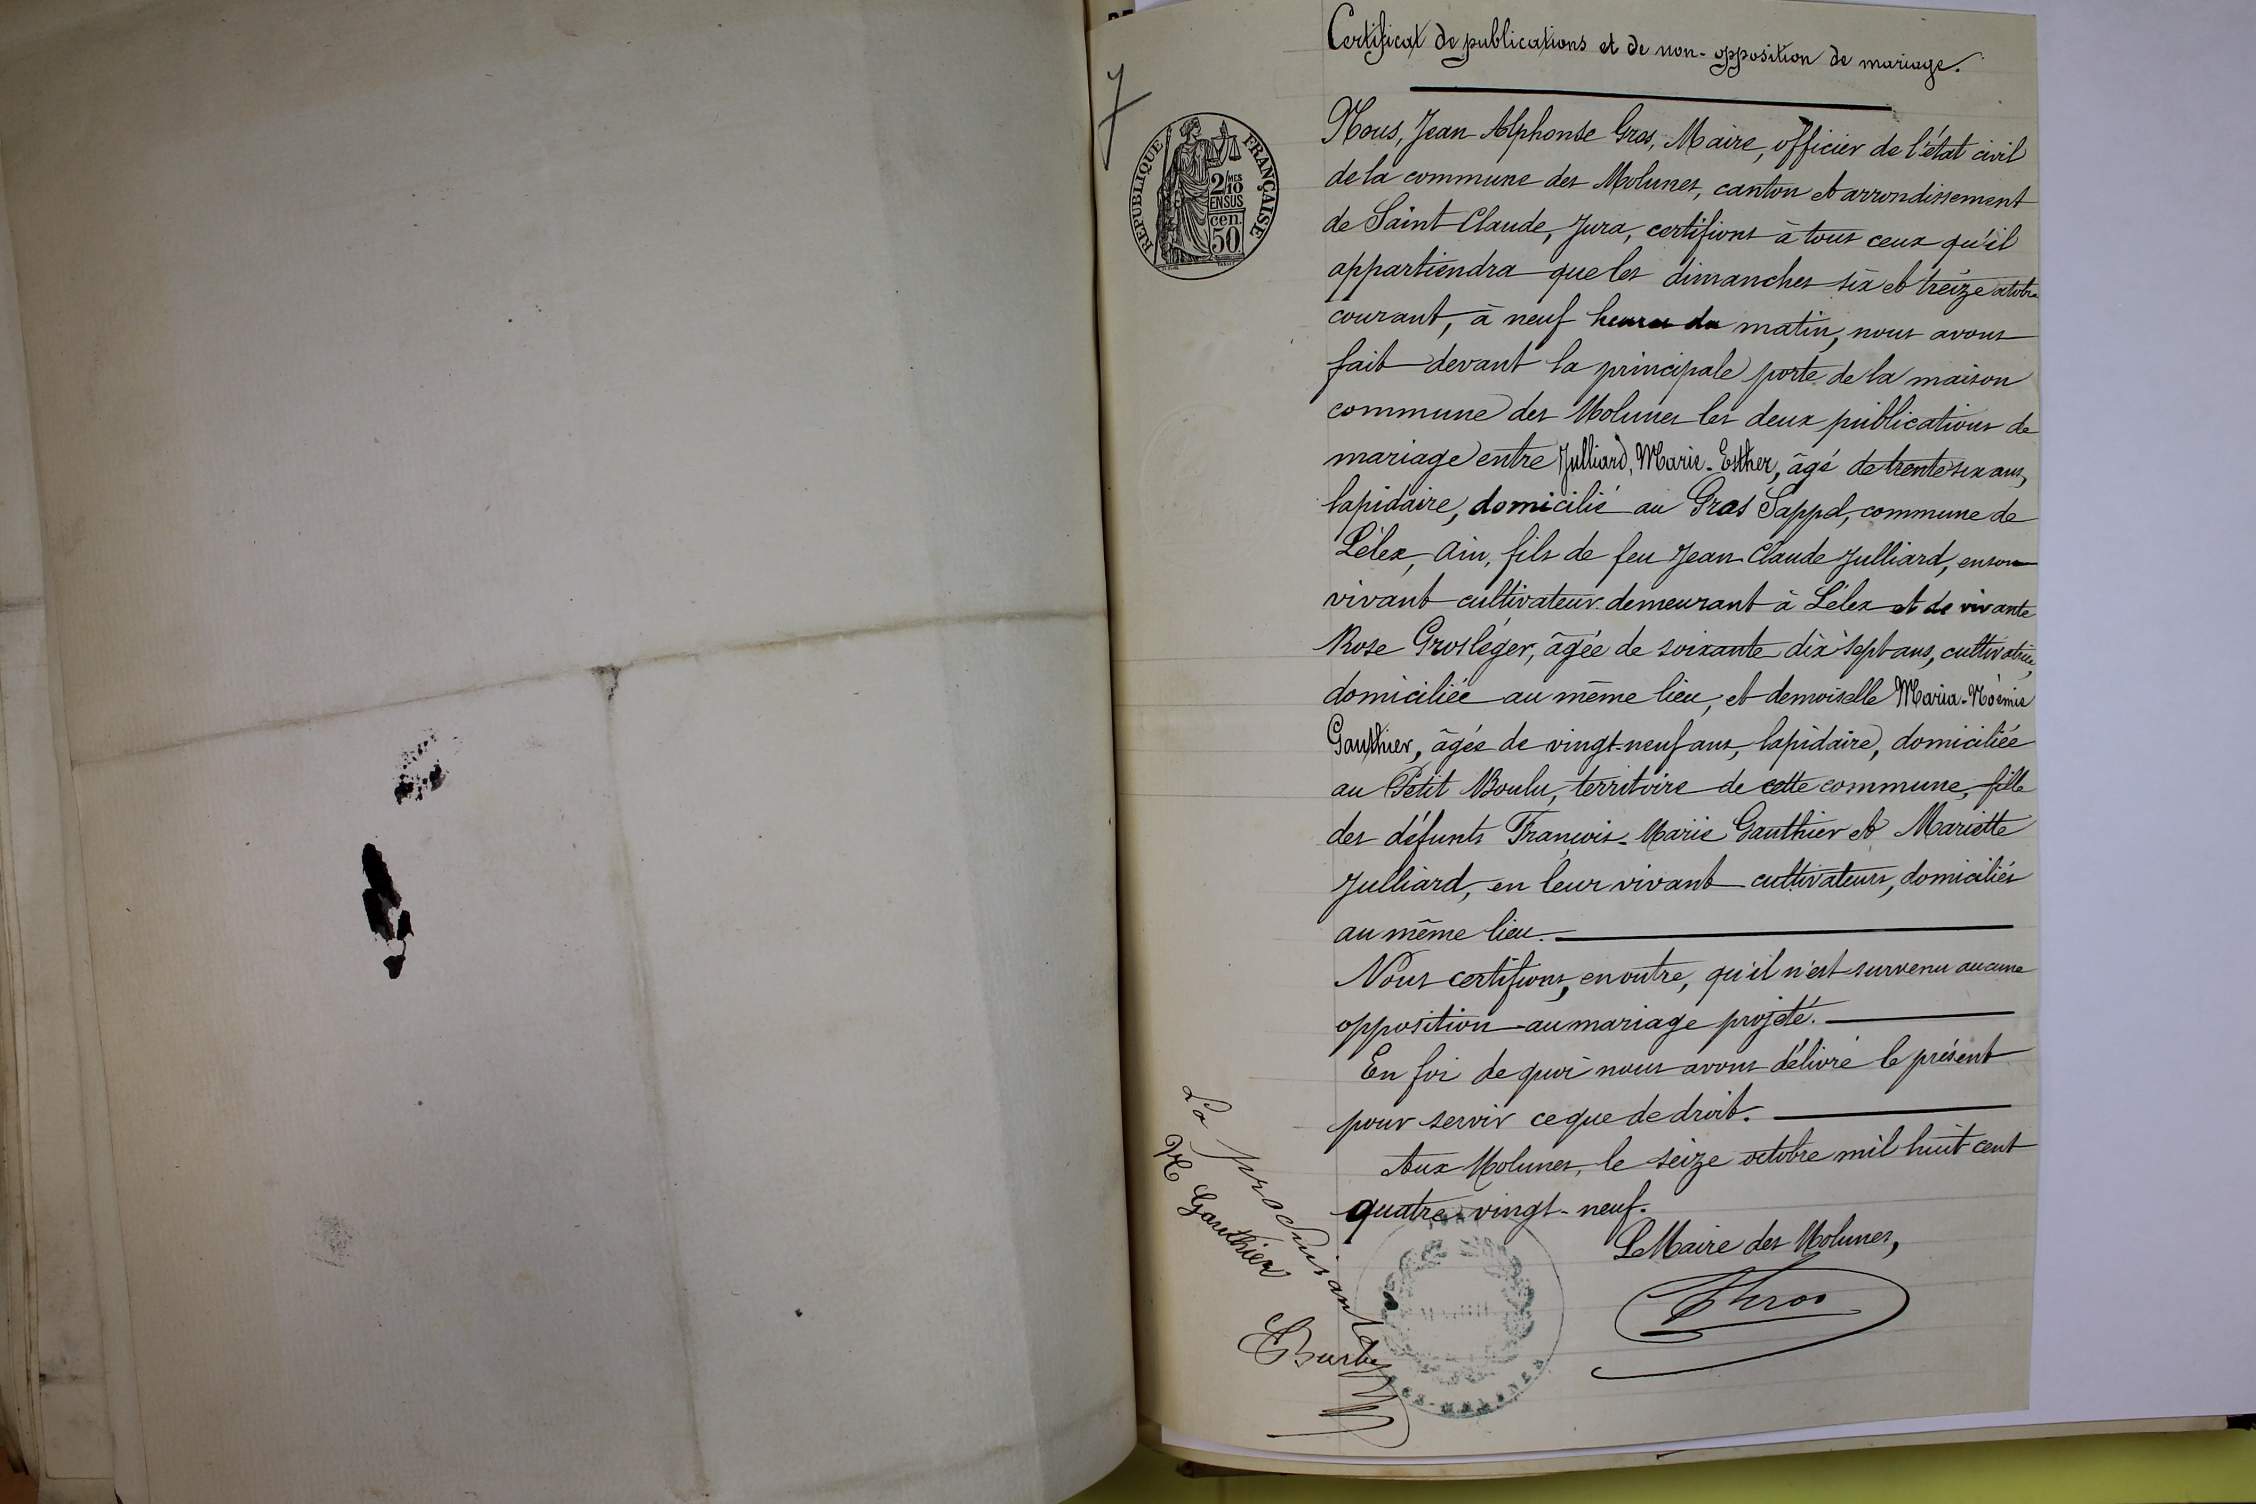 Certificat de publications et de non-opposition de mariage.
7
RÉPUBLIQUE FRANÇAISE
2/10 MES
EN SUS
50 cen.
Nous, Jean Alphonse Gros, Maire, officier de l'état civil
de la commune des Molunes, canton et arrondissement
de Saint-Claude, Jura, certifions à tous ceux qu'il
appartiendra que les dimanches six et treize octobre
courant, à neuf heures du matin, nous avons
fait devant la principale porte de la maison
commune des Molunes les deux publications de
mariage entre Julliard, Marie-Esther, âgé de trente six ans,
lapidaire, domicilié au Gras Sappel, commune de
Lélex, Ain, fils de feu Jean Claude Julliard, en son
vivant cultivateur demeurant à Lélex et de vivante
Rose Grosléger, âgée de soixante dix sept ans, cultivatrice,
domiciliée au même lieu, et demoiselle Maria-Noémie
Gauthier, âgée de vingt-neuf ans, lapidaire, domiciliée
au Petit Boulu, territoire de cette commune, fille
des défunts François-Marie Gauthier et Mariette
Julliard, en leur vivant cultivateurs, domiciliés
au même lieu.
Nous certifions, en outre, qu'il n'est survenu aucune
opposition au mariage projeté.
En foi de quoi nous avons délivré le présent
pour servir ce que de droit.
Aux Molunes, le seize octobre mil huit cent
quatre-vingt-neuf.
Le Maire des Molunes,
La produisante
Gauthier